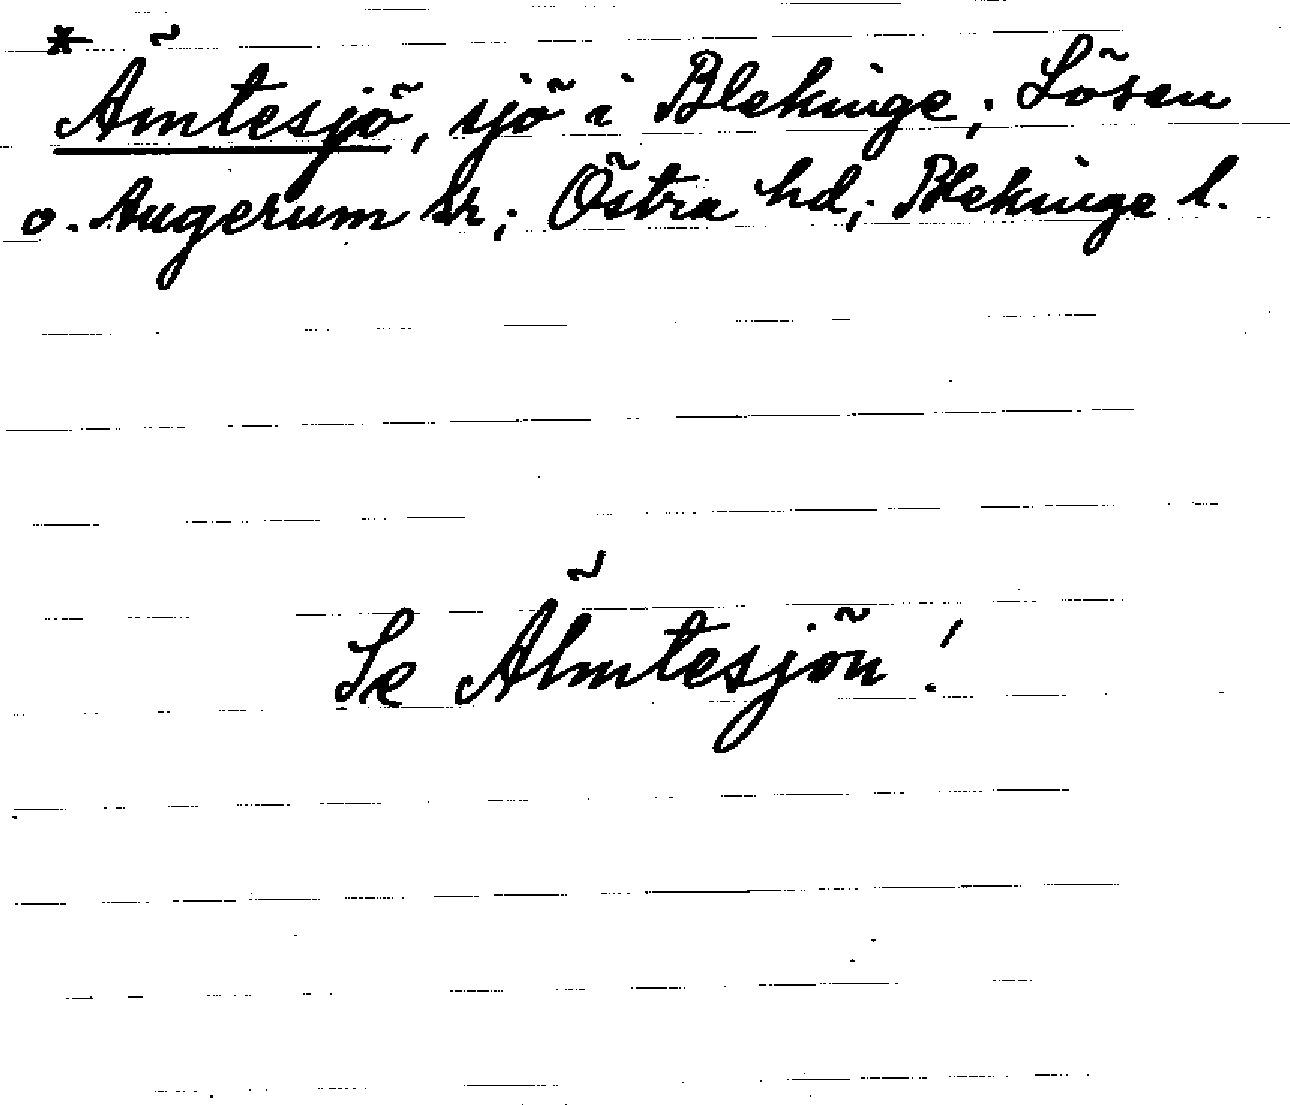 * Ämtesjö, sjö i Blekinge; Lösen
o. Augerum sr; Östra hd; Blekinge l.
Se Älmtesjön!